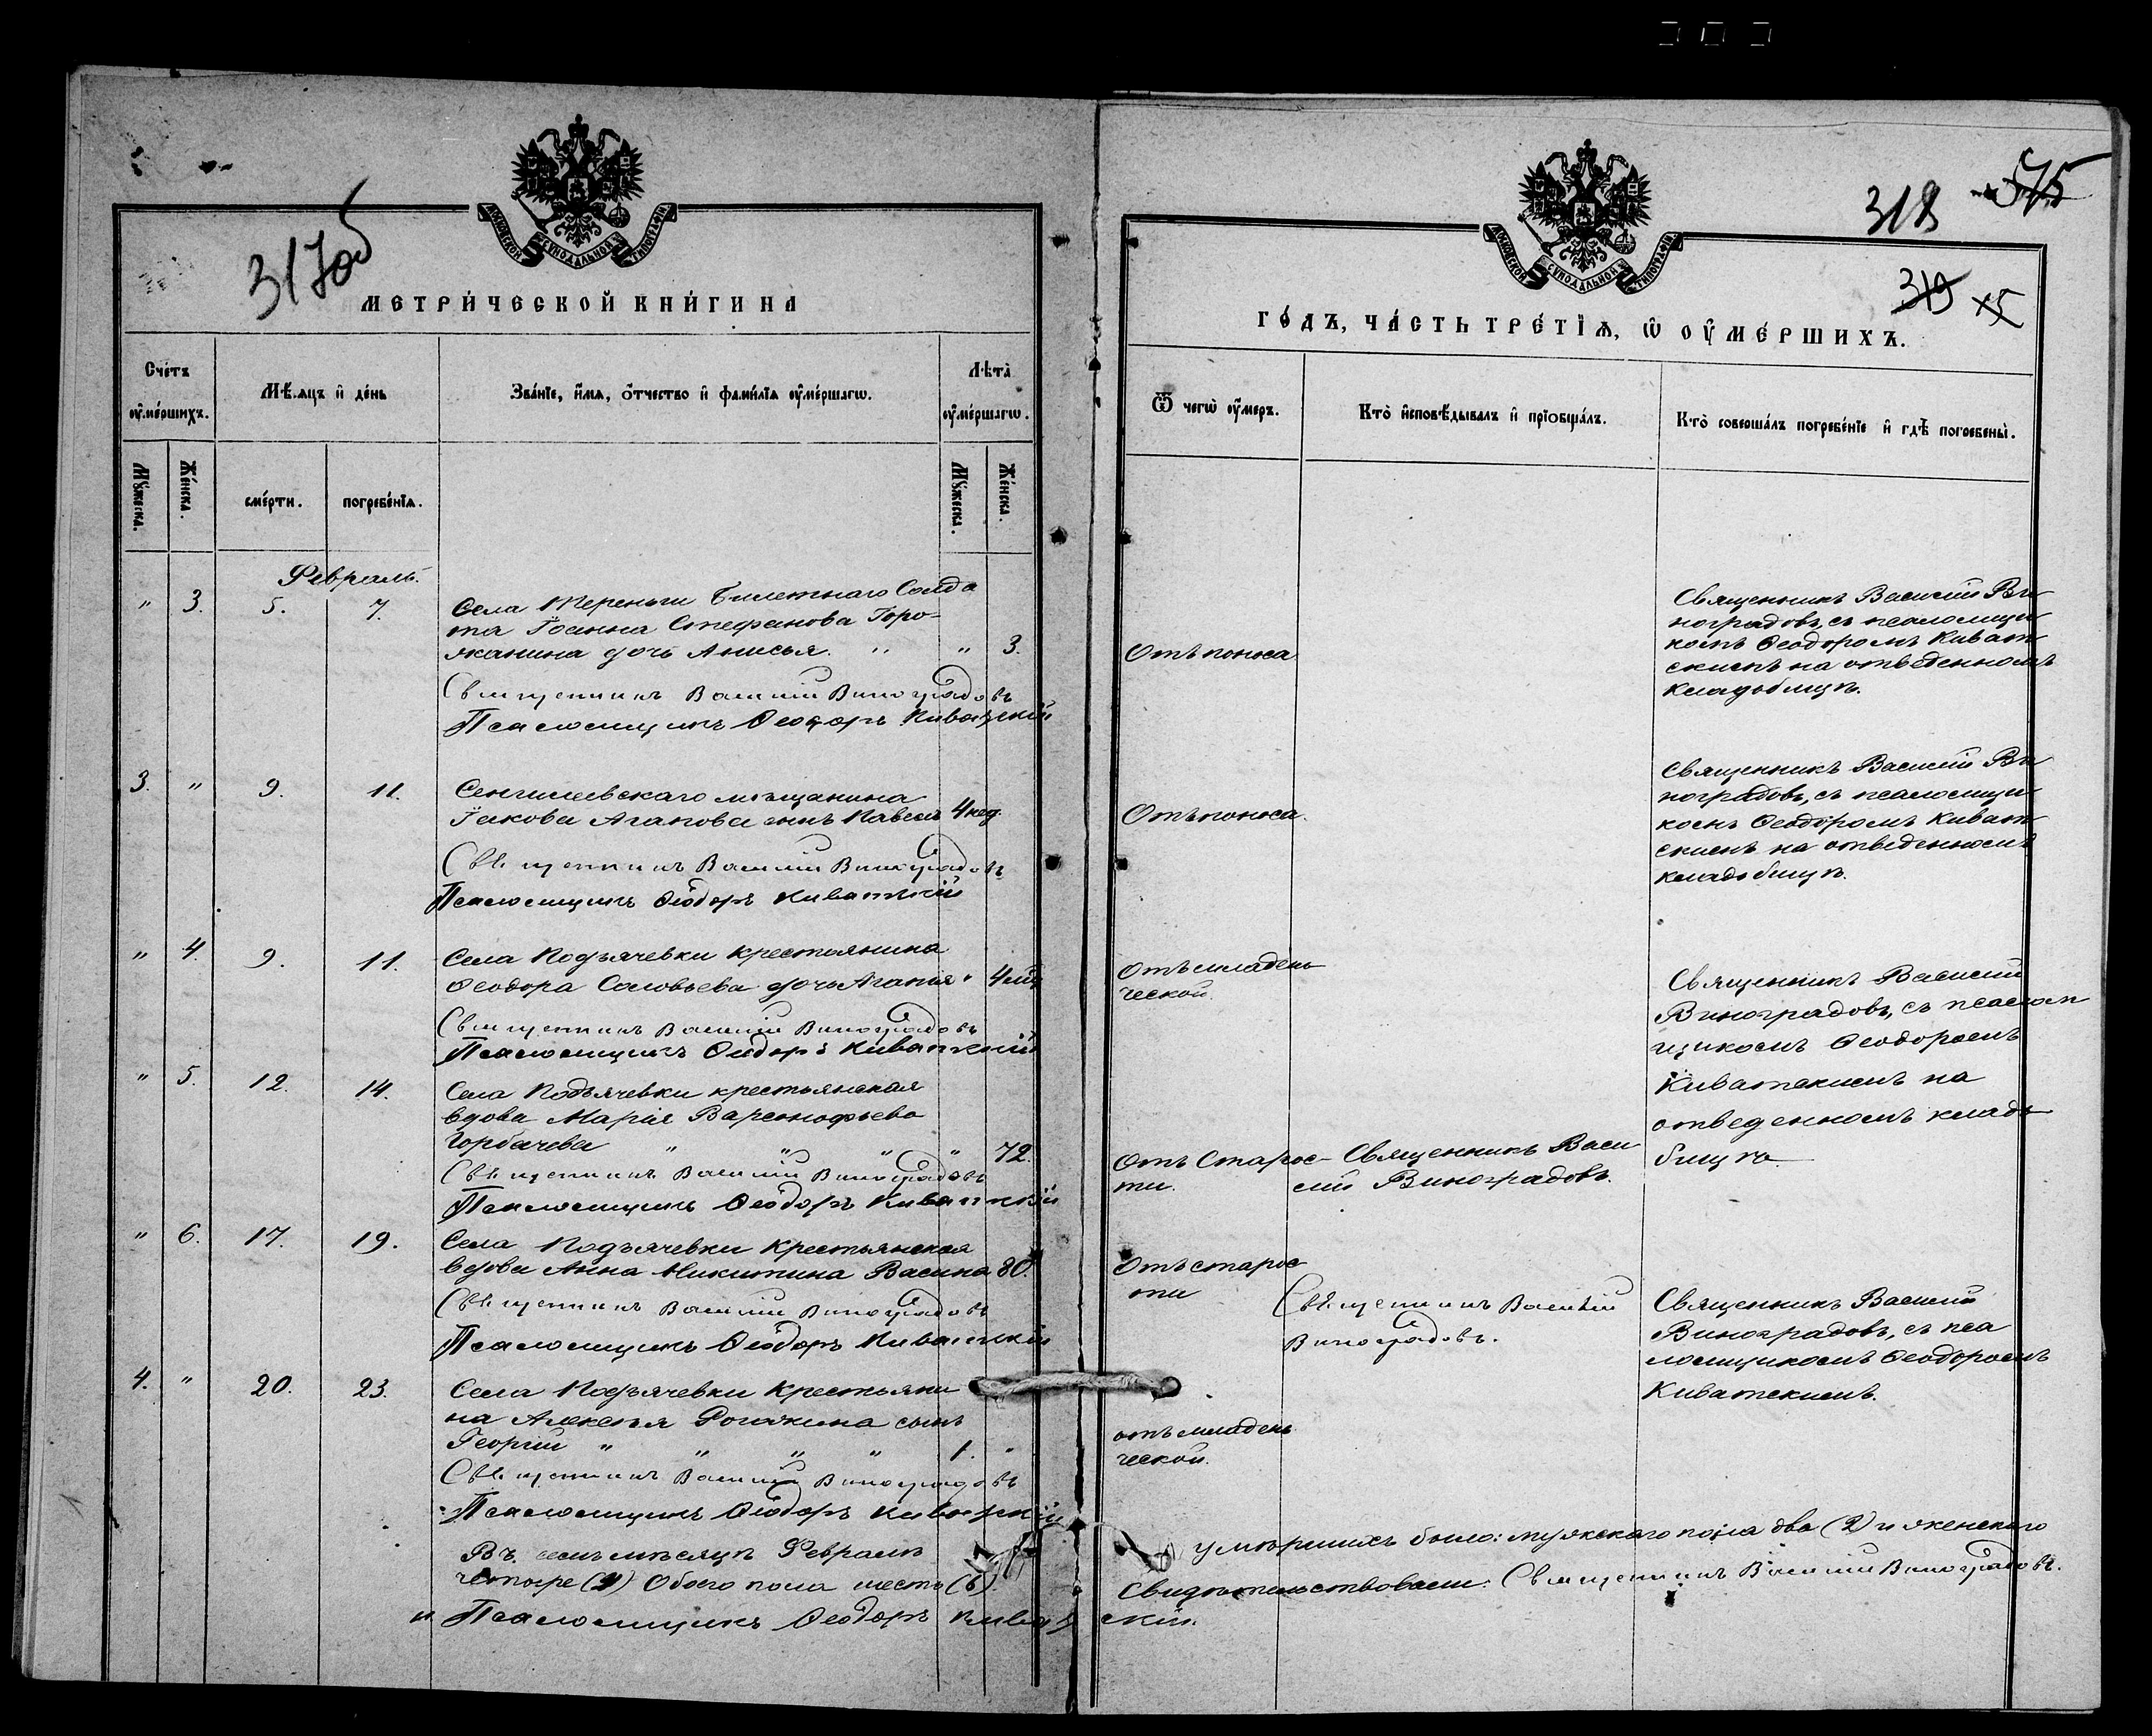 317об
МОСКОВСКОЙ СΥНОДАЛЬНОЙ ТИПОГРАФІИ
МЕТРИ́ЧЕСКОЙ КНИ́ГИ НА
Сче́тъ ᲂу҆ме́ршихъ.
Мѣ́сяцъ и҆ де́нь
Зва́нїе, и҆́мя, ѻ҆́тчество и҆ фами́лїя ᲂу҆ме́ршагѡ.
Лѣта̀ ᲂу҆ме́ршагѡ.
Мꙋ́жеска.
Же́нска.
сме́рти.
погребе́нїѧ.
Мꙋ́жеска.
Же́нска.
Февраль.
" 3. 5. 7. Села Тереньги билетнаго Солда
та Іоанна Стефанова Горо-
жанина дочь Анисья. " " 3.
Священникъ Василій Виноградовъ
Псаломщикъ Ѳеодоръ Киватскій
3. " 9. 11. Сенгилеевскаго мѣщанина
Іакова Агапова сынъ Павелъ 4 нед.
Священникъ Василій Виноградовъ
Псаломщикъ Ѳеодоръ Киватскій
" 4. 9. 11. Села Подъячевки крестьянина
Ѳеодора Соловьева дочь Агапія "
Священникъ Василій Виноградовъ
Псаломщикъ Ѳеодоръ Киватскій
" 5. 12. 14. Села Подъячевки крестьянская
вдова Марія Варсонофьева
Горбачева " " " " 72.
Священникъ Василій Виноградовъ
Псаломщикъ Ѳеодоръ Киватскій
" 6. 17. 19. Села Подъячевки Крестьянская
вдова Анна Никитина Васина 80.
Священникъ Василій Виноградовъ
Псаломщикъ Ѳеодоръ Киватскій
4. " 20. 23. Села Подъячевки Крестьяни
на Алексѣя сынъ
Георгій " " " " 1. "
Священникъ Василій Виноградовъ
Псаломщикъ Ѳеодоръ Киватскій
Въ семъ мѣсяцѣ Февралѣ
четыре (4) Обоего пола шесть (6).
и Псаломщикъ Ѳеодоръ Киват
318 575
319 х5
МОСКОВСКОЙ СΥНОДАЛЬНОЙ ТИПОГРАФІИ
ГО́ДЪ, ЧА́СТЬ ТРЕ́ТЇѦ, Ѡ҆ ОУ҆МЕ́РШИХЪ.
Ѿ чегѡ̀ ᲂу҆́меръ.
Кто̀ и҆сповѣ́дывалъ и҆ прїѻбща́лъ.
Кто̀ соверша́лъ погребе́нїе и҆ гдѣ̀ погребены̀.
Отъ поноса
Священникъ Василій Ви-
ноградовъ, съ псаломщи-
комъ Ѳеодоромъ Киват-
скимъ на отведенномъ
кладбищѣ.
Отъ поноса.
Священникъ Василій Ви-
ноградовъ, съ псаломщи-
комъ Ѳеодоромъ Киват-
скимъ на отведенномъ
кладбищѣ.
Отъ младен
ческой.
Священникъ Василій
Виноградовъ, съ псалом
щикомъ Ѳеодоромъ
Киватскимъ на
отведенномъ клад-
бищѣ.
Отъ Старос-
ти.
Священникъ Васи
лій Виноградовъ.
Отъ старос
ти
Священникъ Василій
Виноградовъ.
Священникъ Василій
Виноградовъ, съ пса
ломщикомъ Ѳеодоромъ
Киватскимъ.
отъ младен
ческой.
умершихъ было: мужскаго пола два (2) и женскаго
Свидѣтельствовали: Священникъ Василій Виноградовъ.
скій.